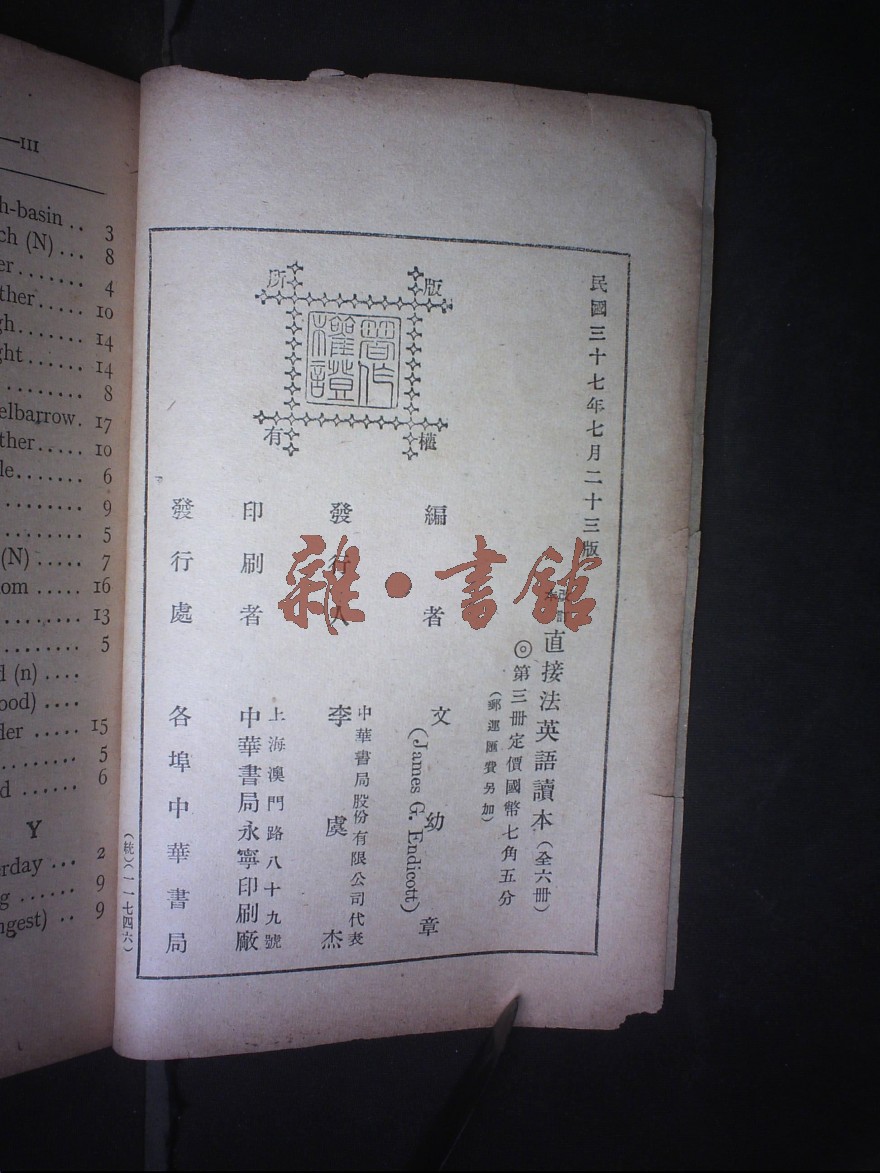 —III
h-basin .. 3
ch (N) ... 8
er ....... 4
ther ..... 10
gh ....... 14
ght ...... 14
......... 8
elbarrow. 17
ther ..... 10
le ....... 6
......... 9
......... 5
(N) ..... 7
om ...... 16
......... 13
......... 5
d (n) ....
ood) ....
der ..... 15
......... 5
d ...... 6
Y
erday ... 2
ng ...... 9
ngest) .. 9
民國三十七年七月二十三版
改訂本 直接法英語讀本（全六冊）
◎第三冊定價國幣七角五分
（郵運匯費另加）
版權所有
著作權證
編者 文幼章
(James G. Endicott)
中華書局股份有限公司代表
發行人 李虞杰
上海澳門路八十九號
印刷者 中華書局永寧印刷廠
發行處 各埠中華書局
（統）（一一七四六）
雜·書館